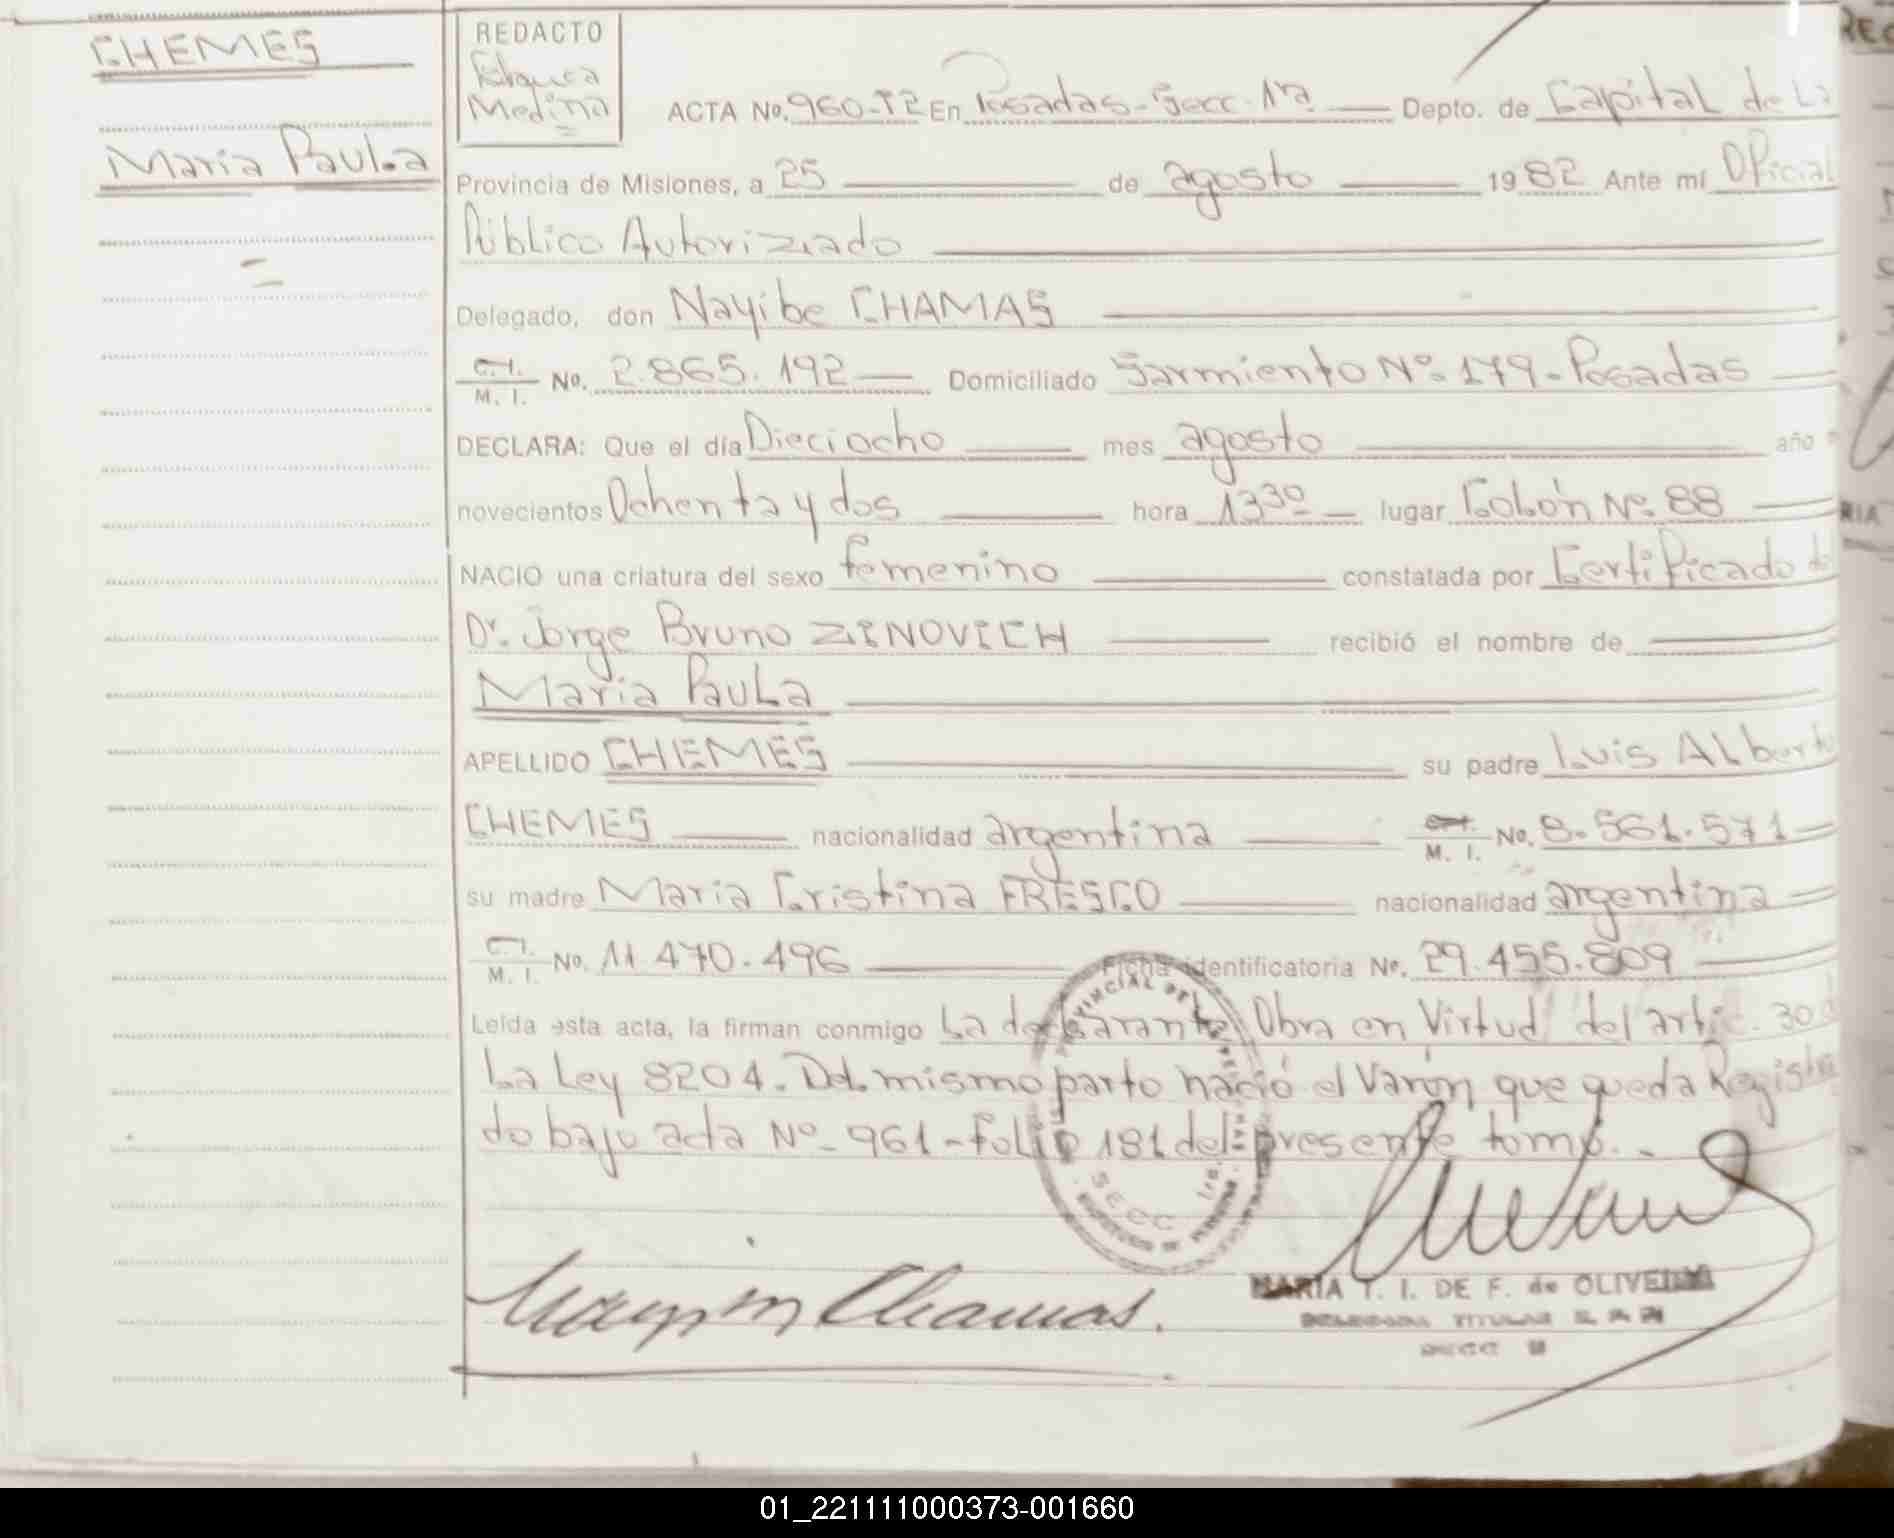 CHEMES
Maria Paula
REDACTO
Medina
ACTA No. 960-T2 En Posadas-Secc. 1ra Depto. de Capital de La
Provincia de Misiones, a 25 de agosto 1982 Ante mí Oficial
Público Autorizado
Delegado, don Nayibe CHAMAS
C.I. M. I. No. 2.865.192 Domiciliado Sarmiento Nº 179-Posadas
DECLARA: Que el día Dieciocho mes agosto año
novecientos Ochenta y dos hora 13³⁰ lugar Colón Nº 88
NACIO una criatura del sexo femenino constatada por Certificado del
Dr. Jorge Bruno ZINOVICH recibió el nombre de
Maria Paula
APELLIDO CHEMES su padre Luis Alberto
CHEMES nacionalidad argentina C.I. M. I. No. 8.561.571
su madre Maria Cristina FRESCO nacionalidad argentina
C.I. M. I. No. 11.470.496 Ficha identificatoria No. 29.455.809
Leída esta acta, la firman conmigo La declarante Obra en Virtud del artic. 30 d
La Ley 8204. Del mismo parto nació el Varón que queda Registra
do bajo acta Nº 961-folio 181 del presente tomo.-
SECC 1ra.
Chamas.
MARIA T. I. DE F. de OLIVEIRA
TITULAR
01_221111000373-001660